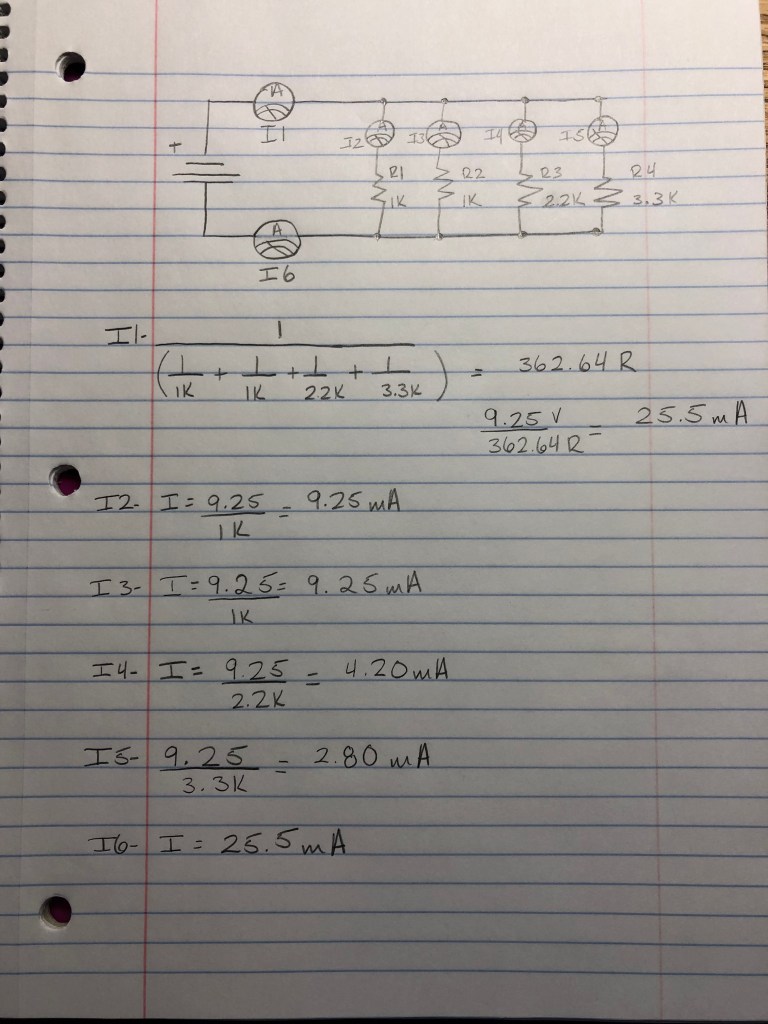 A
I1
+
I2 A I3 A I4 A I5 A
R1 R2 R3 R4
1K 1K 2.2K 3.3K
A
I6
I1- 1
(1/1K + 1/1K + 1/2.2K + 1/3.3K) = 362.64 R
9.25 V/362.64 R = 25.5 mA
I2- I = 9.25/1K = 9.25 mA
I3- I = 9.25/1K = 9.25 mA
I4- I = 9.25/2.2K = 4.20 mA
I5- 9.25/3.3K = 2.80 mA
I6- I = 25.5 mA